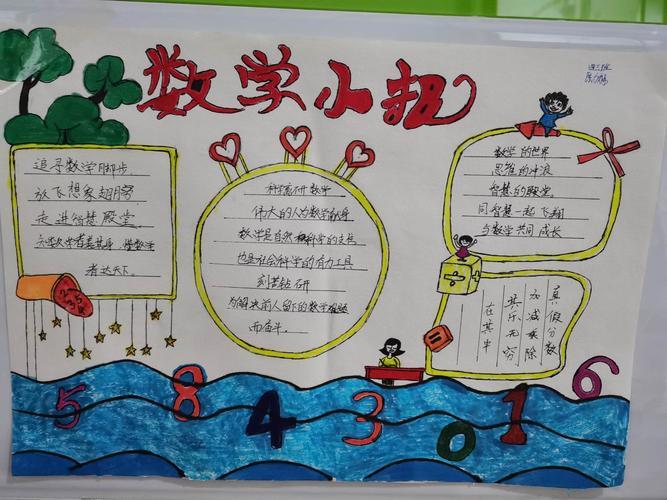 数学小报
四三班
追寻数学脚步
放飞想象翅膀
走进智慧殿堂
者达天下
科研数学
伟大的人为数学献身
数学是自然科学的支柱
也是社会科学的有力工具
刻苦钻研
为解决前人留下的数学难题
而奋斗.
数学的世界
思维的冲浪
智慧的殿堂
同智慧一起飞翔
与数学共同成长
真假分数
加减乘除
其乐无穷
在其中
2
3
5
5
8
4
3
0
1
6